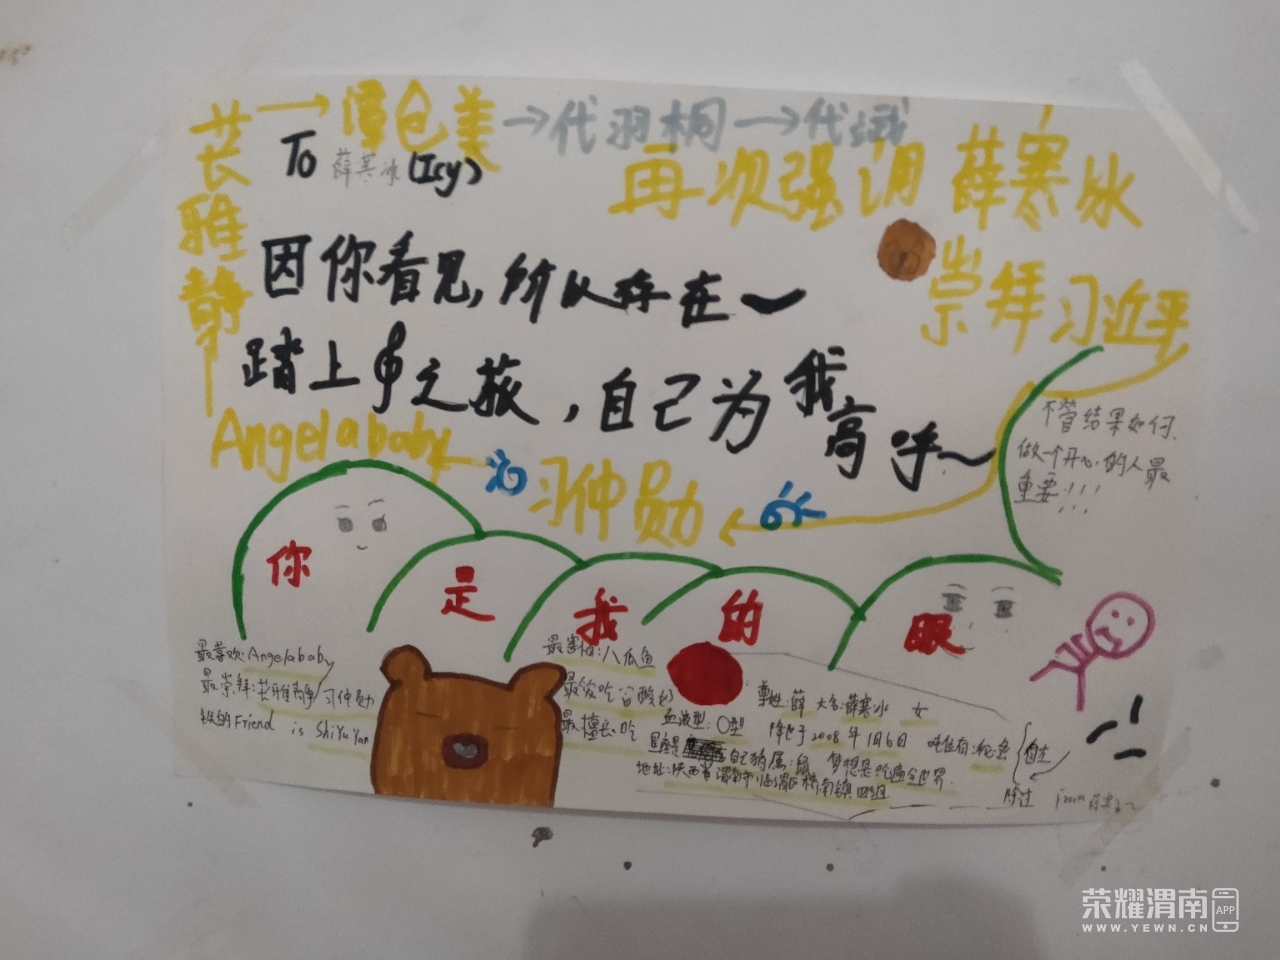 芸 → 僮仓美 → 代羽桐 → 代斌
雅
静
To 薛寒冰(Icy)
再次强调 薛寒冰
崇拜习近平
因你看见,所以存在~
踏上 之旅,自己为我高呼~
Angelababy
习仲勋
不管结果如何,
做个开心的人最
重要!!!
你是我的眼
最喜欢:Angelababy
最崇拜:芸雅静/习仲勋
Friend is ShiYuYan
最害怕:八爪鱼
最爱吃:酸奶
最擅长:吃
尊姓:薛 大名:薛寒冰 女
血液型:O型 降世于2008年1月6日
星座是 自己猜 属:鼠 梦想是吃遍全世界
地址:陕西省渭南市临渭区桥南镇四组
from 薛寒冰~
荣耀渭南 APP
WWW.YEWN.CN